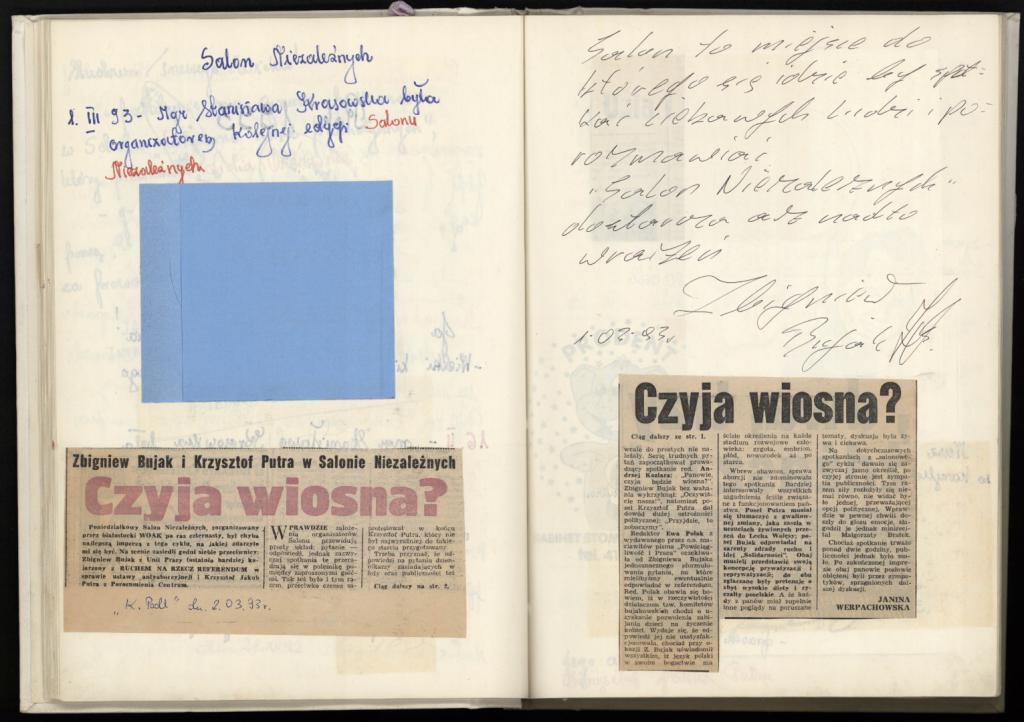 Salon Niezależnych
1. III 93 - Mgr Stanisława Krasowska była
organizatorem kolejnej edycji Salonu
Niezależnych
Zbigniew Bujak i Krzysztof Putra w Salonie Niezależnych
Czyja wiosna?
Poniedziałkowy Salon Niezależnych, zorganizowany
przez białostocki WOAK po raz czternasty, był chyba
najlepszą imprezą z tego cyklu, na jakiej zdarzyło
mi się być. Na scenie zasiedli godni siebie przeciwnicy:
Zbigniew Bujak z Unii Pracy (ostatnio bardziej ko-
jarzony z RUCHEM NA RZECZ REFERENDUM w
sprawie ustawy antyaborcyjnej) i Krzysztof Jakub
Putra z Porozumienia Centrum.
WPRAWDZIE założe-
nia organizatorów
Salonu przewidują
prosty układ: pytanie —
odpowiedź, jednak zaczy-
nają spotkania te przera-
dzają się w polemikę po-
między zaproszonymi gość-
mi. Tak też było i tym ra-
zem, przeciwko czemu za-
protestował w końcu
Krzysztof Putra, który nie
był najwyraźniej do takie-
go starcia przygotowany.
Ciąg dalszy na str. 2.
„K. Podl" dn. 2.03.93r.
Salon to miejsce do
którego się idzie by spot-
kać ciekawych ludzi i po-
rozmawiać
„Salon Niezależnych"
dostarcza aż nadto
wrażeń
Zbigniew
Bujak
1-03-93r.
Czyja wiosna?
Ciąg dalszy ze str. 1.
wcale do prostych nie na-
leżały. Serię trudnych py-
tań zapoczątkował prowa-
dzący spotkanie red. An-
drzej Koziara: „Panowie,
czyja będzie wiosna?"
Zbigniew Bujak bez wa-
hania wykrzyknął: „Oczywiś-
cie nasza!", natomiast po-
seł Krzysztof Putra dał
dowód dużej ostrożności
politycznej: „Przyjdzie, to
zobaczymy".
Redaktor Ewa Polak z
wydawanego przez o.o. mi-
chawlitów pisma „Powściąg-
liwość i Praca" oczekiwa-
ła od Zbigniewa Bujaka
jednoznacznego sformuło-
wania pytania, na które
mielibyśmy ewentualnie
odpowiedzieć w referendum.
Red. Polak obawia się bo-
wiem, iż w rzeczywistości
działaczom tzw. komitetów
bujakowskich chodzi o
uzyskanie pozwolenia zabi-
jania dzieci na życzenie
kobiet. Wydaje się, że od-
powiedź jej nie usatysfak-
cjonowała, chociaż przy o-
kazji Z. Bujak uświadomił
wszystkim, iż język polski
w swoim bogactwie ma
ściśle określenia na każde
stadium rozwojowe czło-
wieka: zygota, embrion,
płód, noworodek aż po
starca.
Wbrew obawom, sprawa
aborcji nie zdominowała
tego spotkania. Bardziej
interesowały wszystkich
zagadnienia ściśle związa-
ne z funkcjonowaniem pań-
stwa. Poseł Putra musiał
się tłumaczyć z gwałtow-
nej zmiany, jaka zaszła w
uczuciach żywionych przez
PC do Lecha Wałęsy; po-
seł Bujak odpowiadał na
zarzuty zdrady ruchu i
idei „Solidarności". Obaj
musieli przedstawiać swoją
koncepcję prywatyzacji i
reprywatyzacji; do obu
zgłaszane były pretensje o
zbyt wysokie diety i ry-
czałty poselskie. A że każ-
dy z panów miał zupełnie
inne poglądy na poruszane
tematy, dyskusja była ży-
wa i ciekawa.
Na dotychczasowych
spotkaniach z „salonowe-
go" cyklu dawało się za-
zwyczaj jasno określić, po
czyjej stronie jest sympa-
tia publiczności. Tym ra-
zem siły rozłożyły się nie-
mal równo, nie widać by-
ło jednej, przeważającej
opcji politycznej. Wpraw-
dzie w pewnej chwili do-
szły do głosu emocje, zła-
godził je jednak minirecital
Małgorzaty Bratek.
Chociaż spotkanie trwało
ponad dwie godziny, publicz-
ności jednak było ma-
ło. Po zakończonej impre-
zie obaj panowie posłowie
oblężeni byli przez sympa-
tyków, spragnionych dal-
szej dyskusji.
JANINA
WERPACHOWSKA